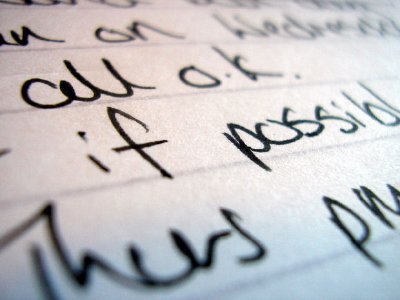 on Wednesda
all o.k.
if possibl
Thurs pm